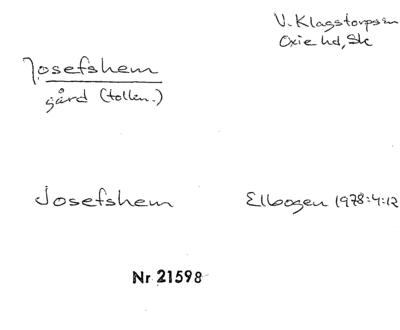 V. Klagstorps sn
Oxie hd, Sk
Josefshem
gård (tollin.)
Josefshem Elbogen 1978:4:12
Nr 21598